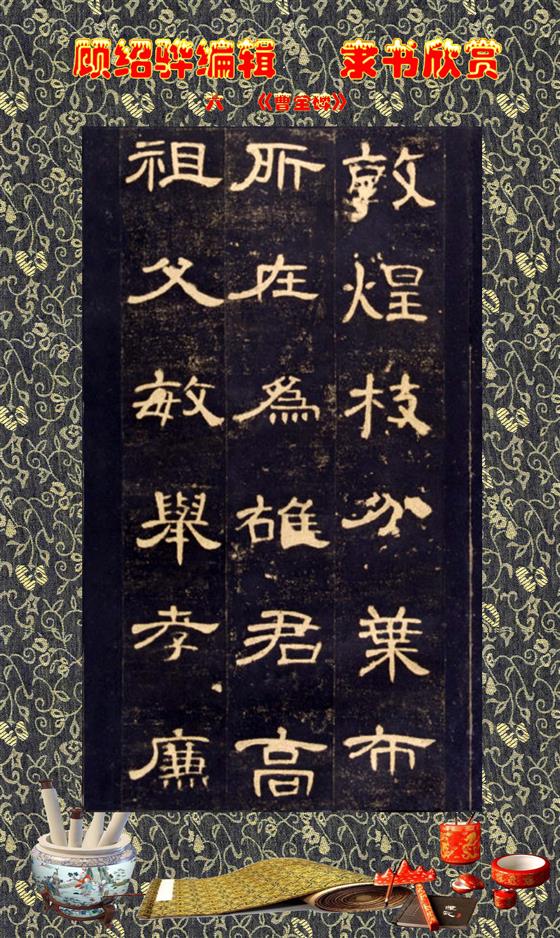 顾绍骅编辑 隶书欣赏
六 《曹全碑》
敦煌枝分葉布
所在為雄君高
祖父敏舉孝廉